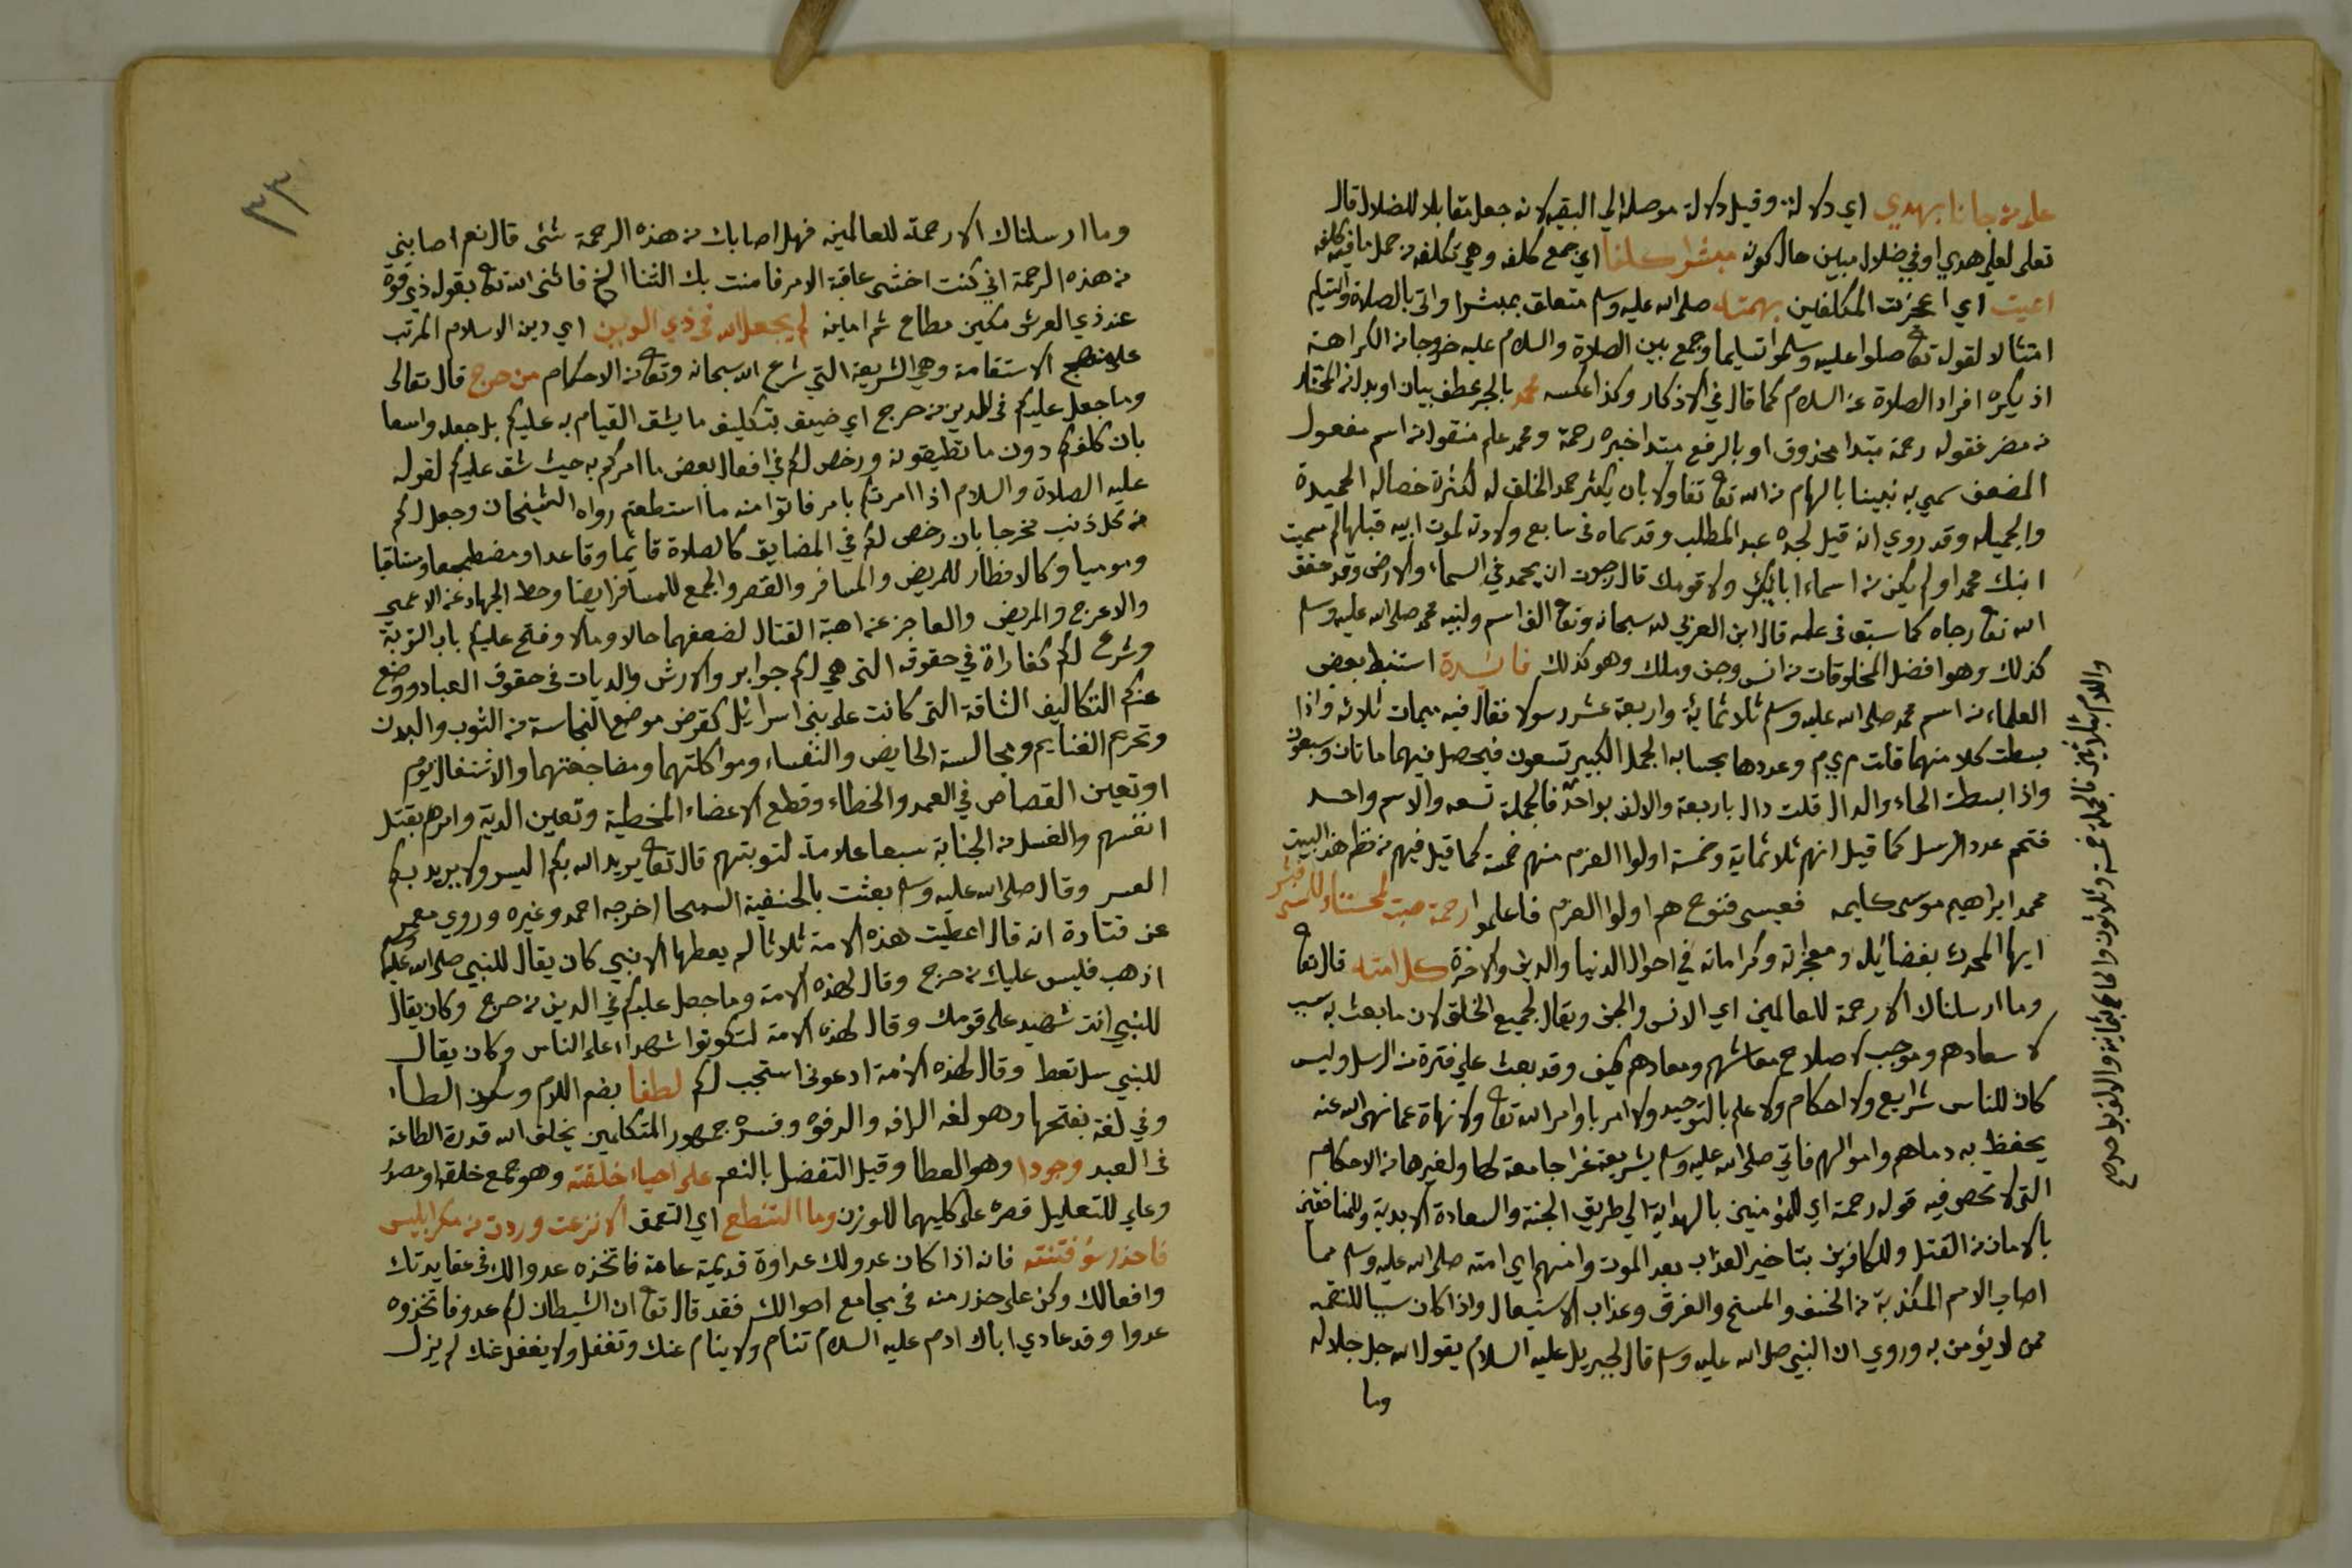 على من جانا بهدي اي دلالة وقيل دلالة موصلة الي البقية لانه جعل مقابلا للضلال قال
تعلى لعلى هدي او في ضلال مبين حال كونه مبشرا كلفا اي جمع كلفه وهي تكلفه من حمل ما فيه كلفه
اعيت اي اعجزت المكلفين بهمته صلى الله عليه وسلم متعلق بمبشرا واتى بالصلاة والتسليم
امتثالا لقوله تع صلوا عليه وسلموا تسليما وجمع بين الصلاة والسلام عليه خروجا من الكراهة
اذ يكره افراد الصلاة عن السلام كما قال في الاذكار وكذا عكسه محمد بالجر عطف بيان او بدل من المختار
من مضر فقوله رحمة مبتدا محذوف او بالرفع مبتدا خبره رحمة ومحمد علم منقول من اسم مفعول
المضعف سمي به نبينا بالهام من الله تع تفاولا بان يكثر حمد الخلق له لكثرة خصاله الحميدة
والجميله وقد روي انه قيل لجده عبد المطلب وقد سماه في سابع ولادته لموت ابيه قبلها لم سميت
ابنك محمدا ولم يكن من اسماء ابائك ولا قومك قال رجوت ان يحمد في السماء والارض وقد حقق
الله تع رجاه كما سبق في علمه قال ابن العربي لله سبحانه وتع الف اسم ولنبيه محمد صلى الله عليه وسلم
كذلك وهو افضل المخلوقات من انس وجن وملك وهو كذلك فائدة استنبط بعض
العلماء من اسم محمد صلى الله عليه وسلم ثلاثماية واربعة عشر رسولا فقال فيه ميمات ثلاثه واذا
بسطت كلا منهما قلت م ي م وعددها بحسابه الجمل الكبير تسعون فيحصل فيهما ماتان وسبعون
واذا بسطت الحاء والدال قلت دال باربعة والالف بواحد فالجملة تسعه والاسم واحد
فتمم عدد الرسل كما قيل انهم ثلاثماية وخمسة اولوا العزم منهم خمسة كما قيل فيهم من نظم هذا البيت
محمد ابراهيم موسى كليمه فعيسى فنوح هم اولوا العزم فاعلموا رحمة
ايها المحدث بفضائله ومعجزاته وكراماته في احوال الدنيا والدين والاخرة كل امته قال تع
وما ارسلناك الا رحمة للعالمين اي الانس والجن ويقال لجميع الخلق لان ما بعث به سبب
لاسعادهم وموجب لاصلاح معاشهم ومعادهم كيف وقد بعث على فترة من الرسل وليس
كان للناس شرايع ولا احكام ولا علم بالتوحيد ولا امر باوامر الله تع ولا نهاة عما نهى الله عنه
يحفظ به دماهم واموالهم فاتي صلى الله عليه وسلم بشريعة غرا جامعة لها ولغيرها من الاحكام
التي لا تحص فيه قوله رحمة اي للمؤمنين بالهداية الي طريق الجنة والسعادة الابدية وللمنافقين
بالامان من القتل وللكافرين بتاخير العذاب بعد الموت وامنهم اي امته صلى الله عليه وسلم مما
اصاب الامم المكذبة من الخسف والمسخ والغرق وعذاب الاستيصال واذا كان سببا للنقمه
ممن لا يؤمن به وروي ان النبي صلى الله عليه وسلم قال لجبريل عليه السلام يقول الله جل جلاله
وما
٣٣
وما ارسلناك الا رحمة للعالمين فهل اصابك من هذه الرحمة شئ قال نعم اصابني
من هذه الرحمة اني كنت اخشى عاقبة الامر فامنت بك الثنا الخ فاثنى الله تع بقوله ذي قوة
عند ذي العرش مكين مطاع ثم امين لم يجعل الله في ذي الدين اي دين الاسلام المرتب
على منهج الاستقامة وهي الشريعة التي شرع الله سبحانه وتع من الاحكام من حرج قال تعالى
وما جعل عليكم في الدين من حرج اي ضيق بتكليف ما يشق القيام به عليكم بل جعله واسعا
بان كلفكم دون ما تطيقونه ورخص لكم في افعال بعض ما امركم به حيث شق عليكم لقوله
عليه الصلاة والسلام اذا امرتكم بامر فاتوا منه ما استطعتم رواه الشيخان وجعل لكم
من كل ذنب مخرجا بان رخص لكم في المضايق كالصلاة قائما وقاعدا ومضطجعا ومستلقيا
وموميا وكالافطار للمريض والمسافر والقصر والجمع للمسافر ايضا وحط الجهاد عن الاعمى
والاعرج والمريض والعاجز عن اهبة القتال لضعفهما حالا ومالا وفتح عليكم باب التوبة
وشرع لكم كفاراة في حقوقه التي هي لكم جوابر والارش والديات في حقوق العباد ووضع
عنكم التكاليف الشاقة التي كانت على بني اسرائيل كقرض موضع النجاسة من الثوب والبدن
وتحريم الغنايم ومجالسة الحايض والنفساء ومواكلتهما ومضاجعتهما والاشتغال يوم
او تعين القصاص في العمد والخطاء وقطع الاعضاء المخطية وتعين الدية وامرهم بقتل
انفسهم والغسل من الجنابة سبعا علامة لتوبتهم قال تع يريد الله بكم اليسر ولا يريد بكم
العسر وقال صلى الله عليه وسلم بعثت بالحنفية السمحا اخرجه احمد وغيره وروي معمر
عن قتادة انه قال اعطيت هذه الامة ثلاثا لم يعطها الا نبي كان يقال للنبي صلى الله عليه وسلم
اذهب فليس عليك من حرج وقال لهذه الامة وما جعل عليكم في الدين من حرج وكان يقال
للنبي انت شهيد على قومك وقال لهذه الامة لتكونوا شهداء على الناس وكان يقال
للنبي سل تعط وقال لهذه الامة ادعوني استجب لكم لطفا بضم اللام وسكون الطاء
وفي لغة بفتحها وهو لغه الرافه والرفوه وفسره جمهور المتكلمين بخلق الله قدرة الطاعة
في العبد وجودا وهو العطا وقيل التفضل بالنعم على احياء خلقته وهو جمع خلقه او مصدر
وعلى للتعليل قصره على كليهما للوزن وما التنطع اي التعمق الا نزعت وردت من مكر ابليس
فاحذر سؤ فتنته فانه اذا كان عدو لك عداوة قديمة عامة فاتخذه عدوا لك في عقايدتك
وافعالك وكن على حذر منه في مجامع احوالك فقد قال تع ان الشيطان لكم عدو فاتخذوه
عدوا وقد عادي اباك ادم عليه السلام تنام ولا ينام عنك وتغفل ولا يغفل عنك لم يزل